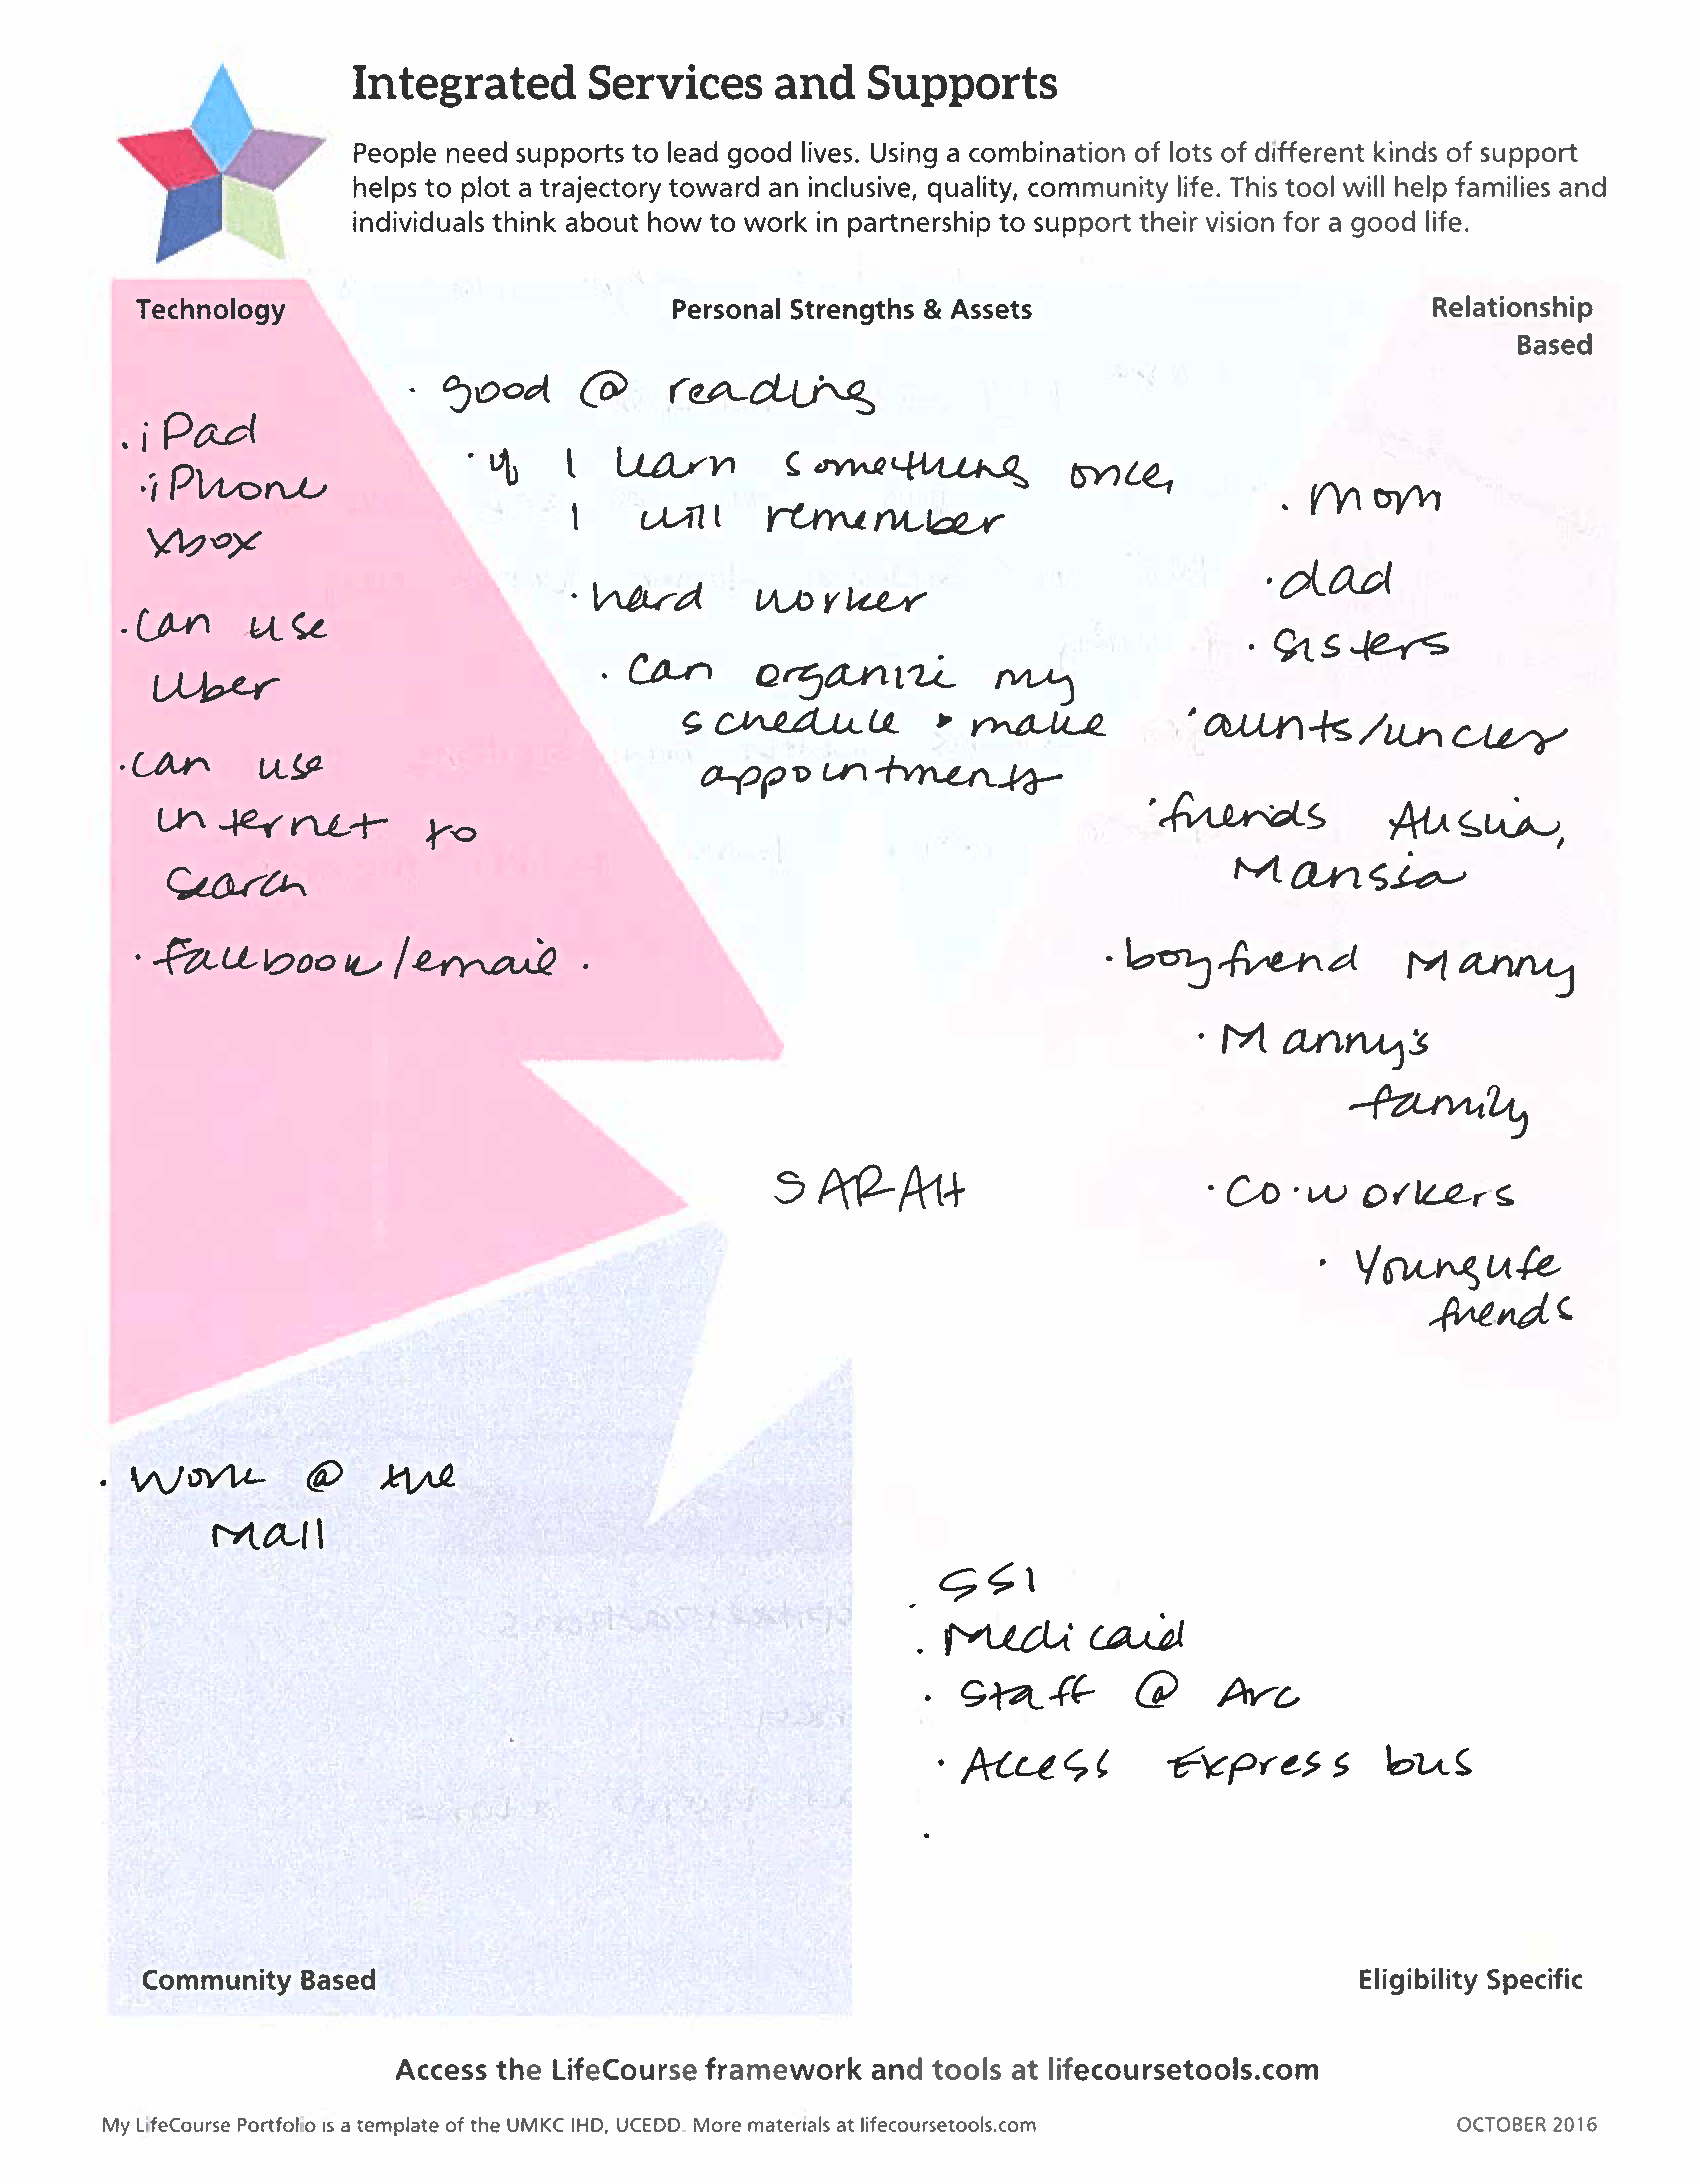 Integrated Services and Supports
People need supports to lead good lives. Using a combination of lots of different kinds of support
helps to plot a trajectory toward an inclusive, quality, community life. This tool will help families and
individuals think about how to work in partnership to support their vision for a good life.
Technology
· iPad
· iPhone
Xbox
· Can use
Uber
· can use
internet to
search
· facebook/email ·
Personal Strengths & Assets
· good @ reading
· if I learn something once,
I will remember
· hard worker
· Can organize my
schedule + make
appointments
Relationship
Based
· mom
· dad
· sisters
· aunts/uncles
· friends
Mansia
· boyfriend Manny
· Manny's
family
· co-workers
· Younglife
friends
SARAH
· Work @ the
Mall
Community Based
· SSI
· Medicaid
· Staff @ Arc
· Access Express bus
·
Eligibility Specific
Access the LifeCourse framework and tools at lifecoursetools.com
My LifeCourse Portfolio is a template of the UMKC IHD, UCEDD. More materials at lifecoursetools.com
OCTOBER 2016